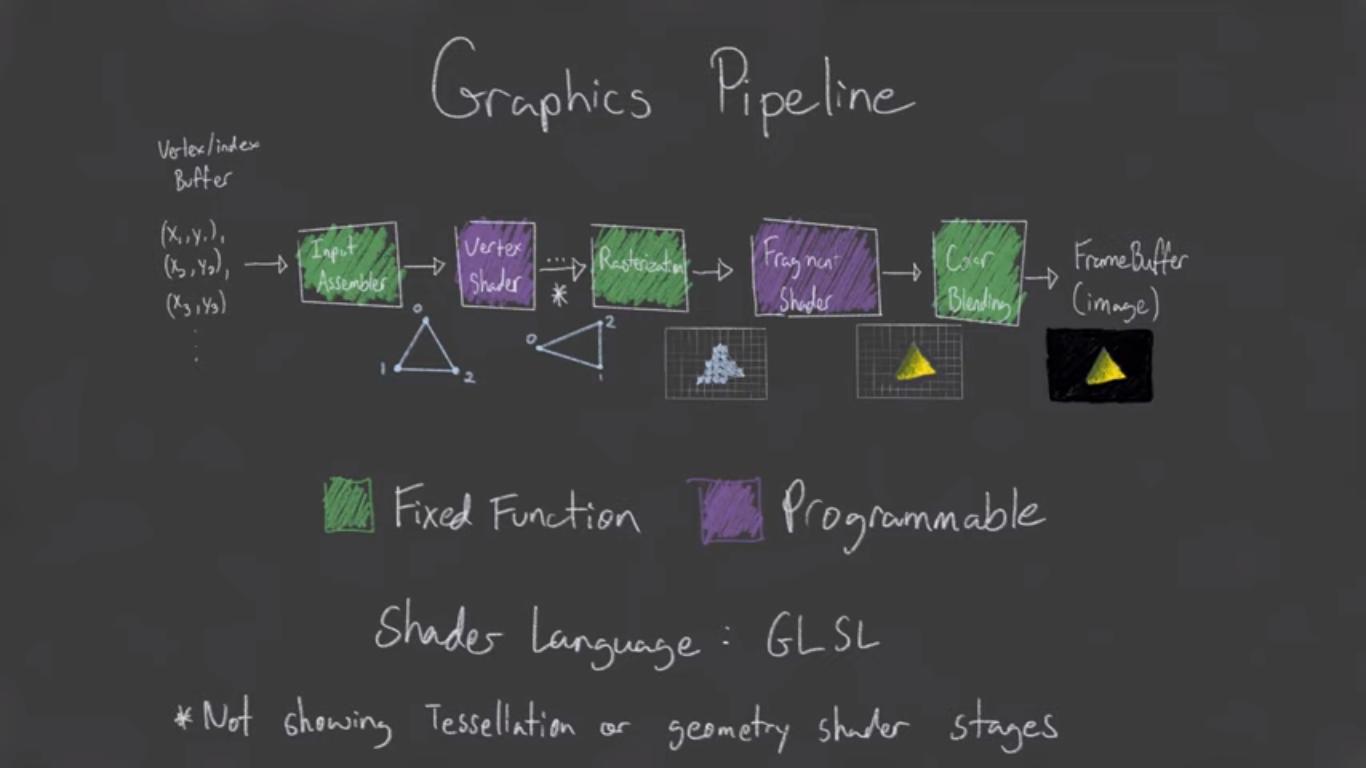 Graphics Pipeline
Vertex/index
Buffer
(x₁,y₁),
(x₂,y₂),
(x₃,y₃)
⋮
Input
Assembler
0
1
2
Vertex
Shader
...
*
0
2
1
Rasterization
Fragment
Shader
Color
Blending
FrameBuffer
(image)
Fixed Function
Programmable
Shader Language : GLSL
*Not showing Tessellation or geometry shader stages